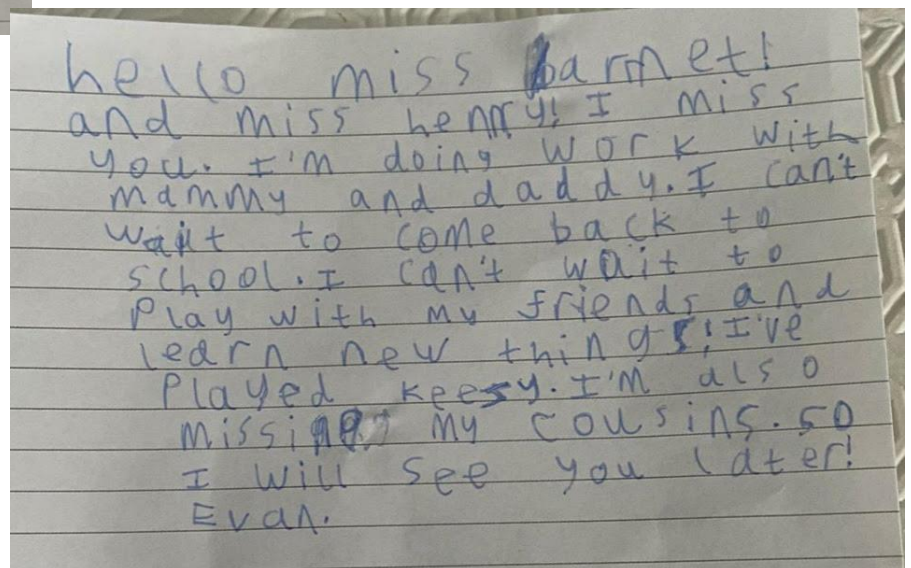 hello miss barnet!
and miss henry! I miss
you. I'm doing work with
mammy and daddy. I can't
wait to come back to
school. I can't wait to
Play with my friends and
learn new things! I've
Played keepsy. I'm also
missing my cousins. so
I will see you later!
Evan.